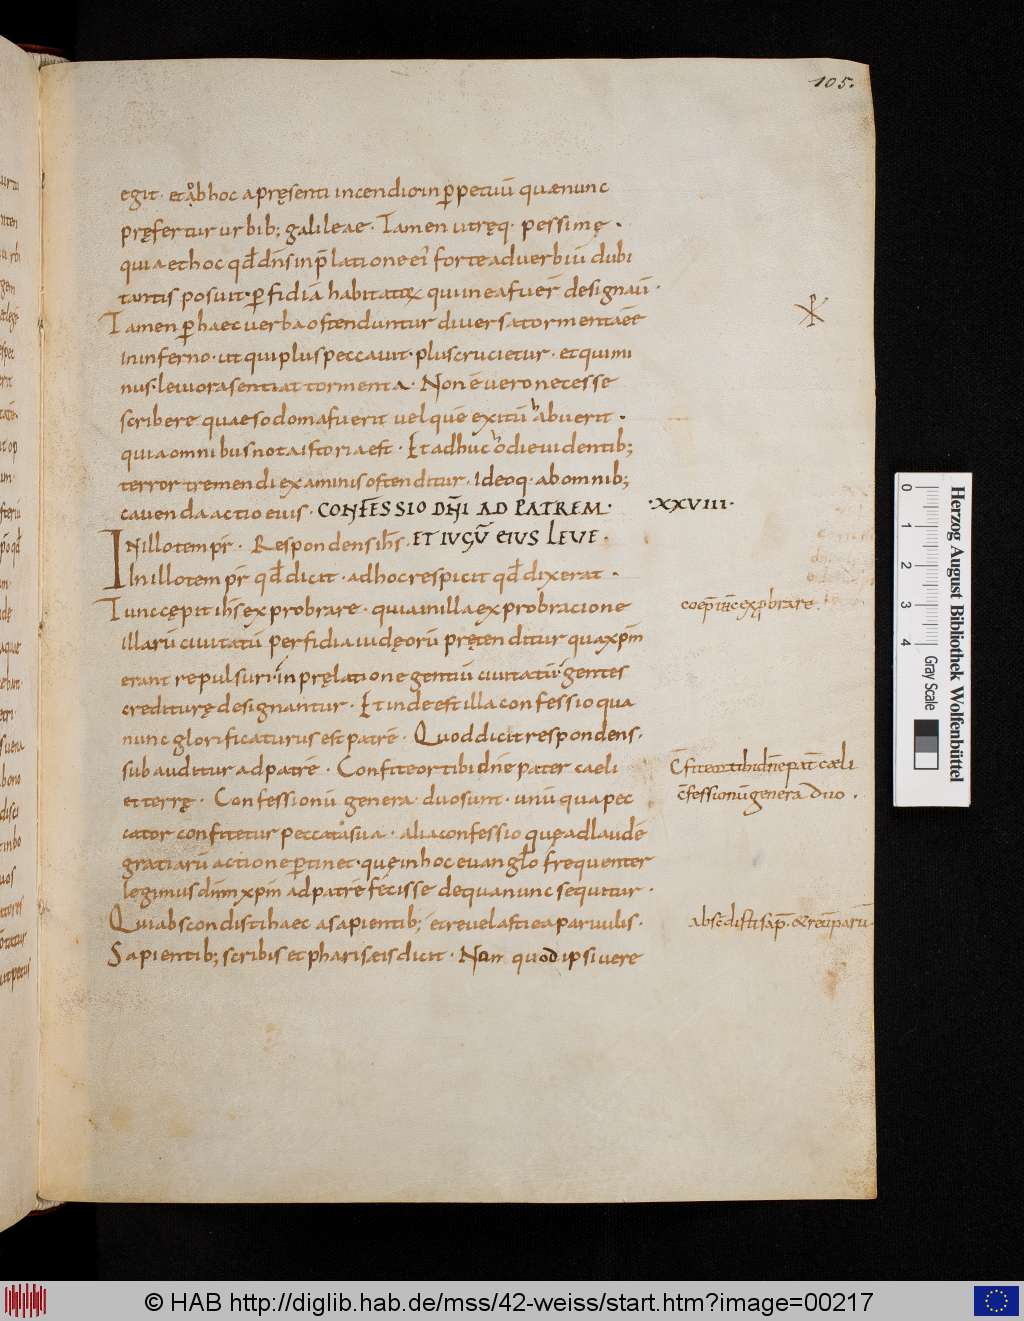 105.
egit · et ab hoc a pręsenti incendio in p̄petuū quae nunc
pręfertur urbib; galileae · Tamen utręq · pessimę ·
quia et hoc qđ dn̄s in p̄latione ei forte adverbiū dubi
tantis posuit · p̄fidiā habitatorū qui in ea fuer̄ designaū ·
Tamen p̄ haec verba ostenduntur diversa tormenta ēē
in inferno · ut qui plus peccavit · plus crucietur · et qui mi
nus · leviora sentiat tormenta · Non ē vero necesse
scribere quae sodoma fuerit vel quē exitū habuerit ·
quia omnibus nota istoria est · Et adhuc hodie videntib;
terror tremendi examinis ostenditur · Ideoq · ab omnib;
cavenda actio eius · CONFESSIO DN̄I AD PATREM · XXVIII ·
In illo temp̄r · Respondens ih̄s · ET IUGŪ EIUS LEVE ·
In illo temp̄r qđ dicit · ad hoc respicit qđ dixerat ·
Tunc cępit ih̄s exprobrare · quia in illa exprobracione
coep̄ iħc exp̱brare .
illarū civitatū perfidia iudęorū prętenditur qua xp̄m
erant repulsuri · in pręlatione gentiū civitatū · gentes
crediturę designantur · Et inde est illa confessio qua
nunc glorificaturus est patrē · Quod dicit respondens ·
subauditur ad patrē · Confiteor tibi dn̄e pater caeli
c̄fiteor tibi dn̄e pat̄ cæli
et terrę · Confessionū genera duo sunt · unū qua pec
c̄fessionū genera duo .
cator confitetur peccata sua · alia confessio quę ad laudē
gratiarū actione p̄tinet · quę in hoc euanglō frequenter
legimus dn̄m xp̄m ad patrē fecisse de qua nunc sequitur ·
Qui abscondisti haec a sapientib; et revelasti ea parvulis ·
absc̄disti sap̄ · & reu̅ paruū
Sapientib; scribis et phariseis dicit · Nam quod ipsi vere
Herzog August Bibliothek Wolfenbüttel
0 1 2 3 4
Gray Scale
© HAB http://diglib.hab.de/mss/42-weiss/start.htm?image=00217